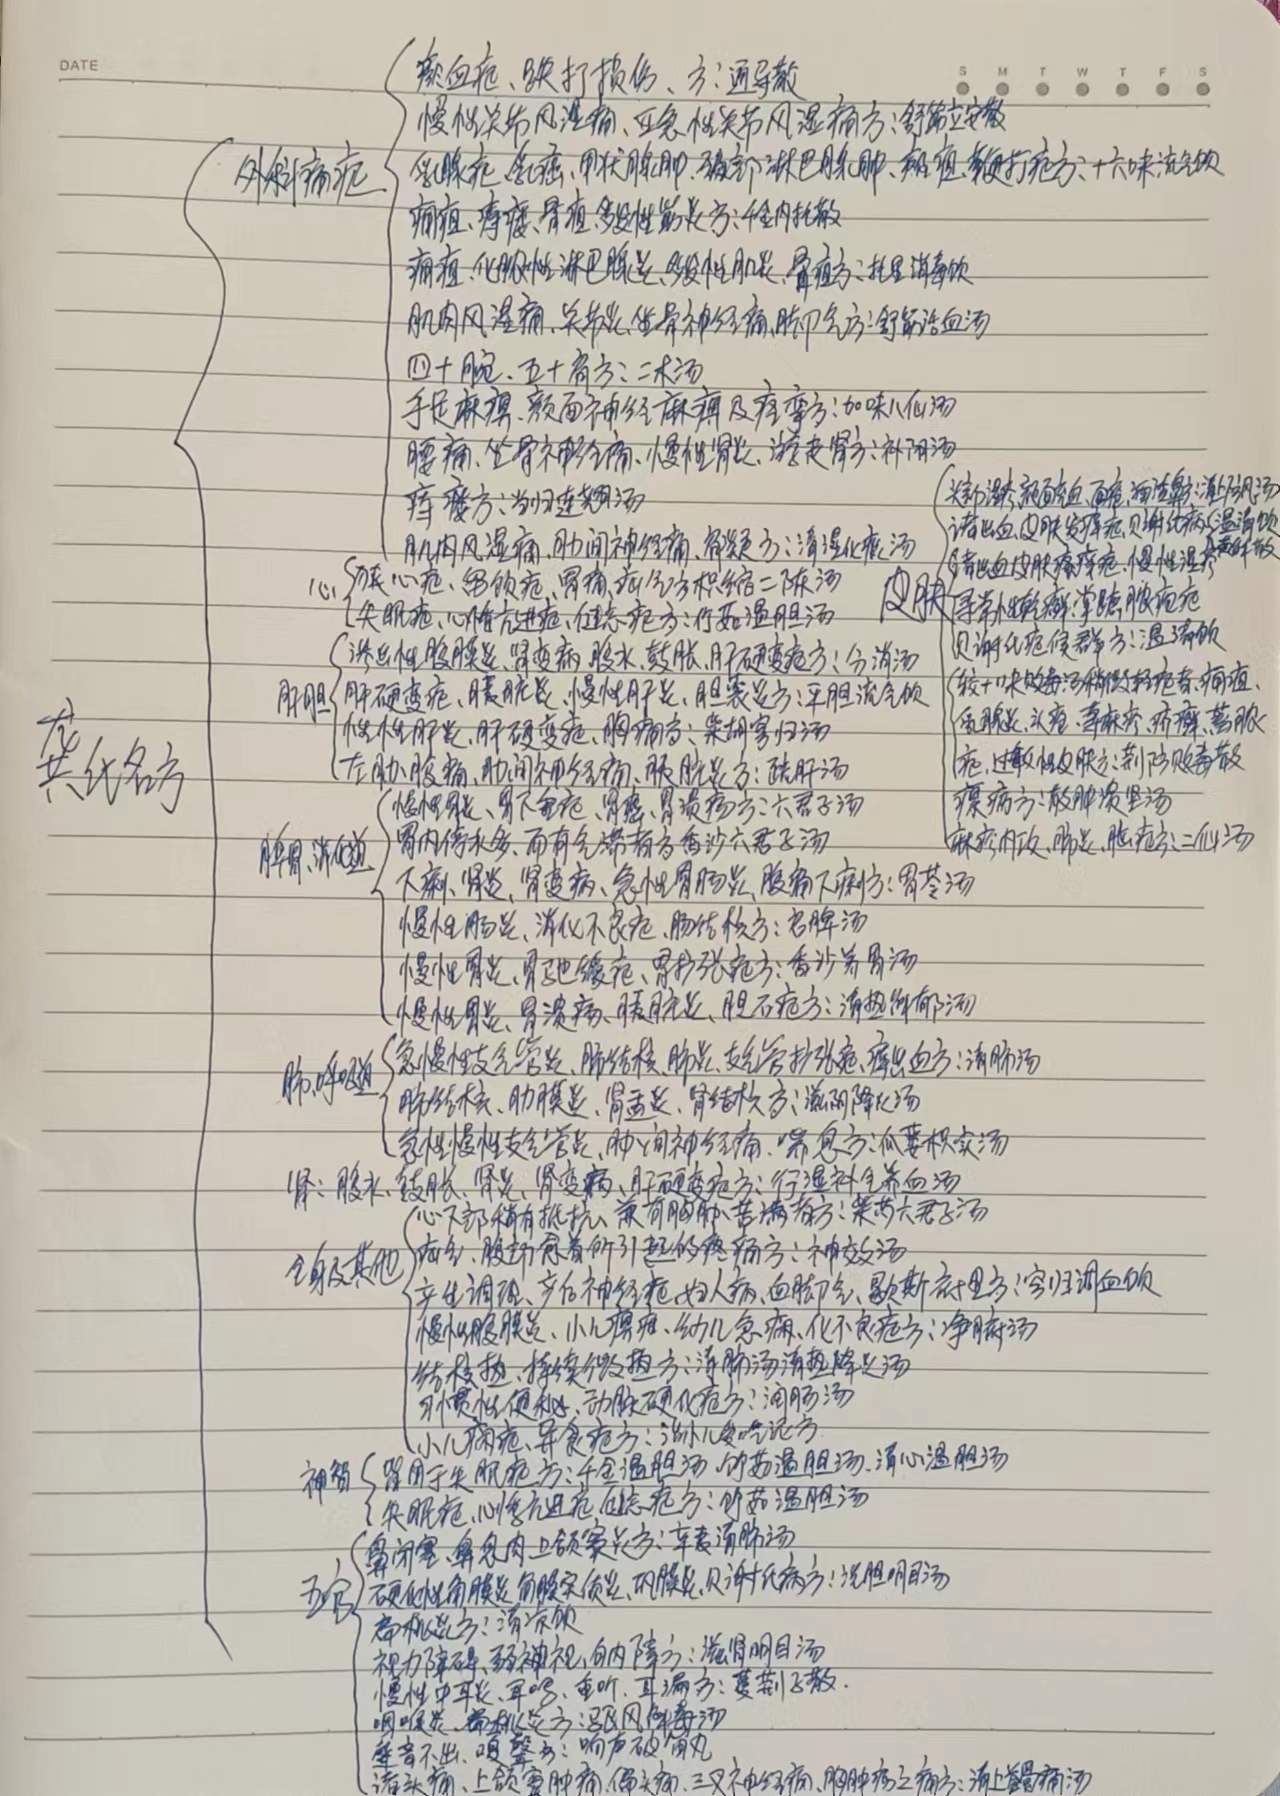 DATE
S M T W T F S
龚氏名方
外科痛疮
瘀血疮、跌打损伤、方：通导散
慢性关节风湿痛、亚急性关节风湿痛方：舒筋立安散
乳腺疮、乳癌、甲状腺肿、颈部淋巴腺肿、痈疽、鞭打疮方：十六味流气饮
痈疽、痔瘘、骨疽、多发性筋炎方：千金内托散
痈疽、化脓性淋巴腺炎、多发性肌炎、骨疽方：托里消毒饮
肌肉风湿痛、关节炎、坐骨神经痛、脚气方：舒筋活血汤
四十腕、五十肩方：二术汤
手足麻痹、颜面神经麻痹及痉挛方：加味八仙汤
腰痛、坐骨神经痛、慢性肾炎、游走肾方：补阴汤
痔瘘方：当归连翘汤
肌肉风湿痛、肋间神经痛、肩凝方：清湿化痰汤
皮肤
头部湿疹、颜面充血、面疮、酒渣鼻：清上防风汤
诸出血、皮肤发痒疮、贝谢氏病
诸出血皮肤瘙痒疮、慢性湿疹
寻常性乾癣、掌蹠脓疱疮
贝谢氏疮候群方：温清饮
较十味败毒汤稍微轻疮者、痈疽、
乳腺炎、头疮、荨麻疹、疥癣、蓄脓
疮、过敏性皮肤方：荆防败毒散
瘰病方：散肿溃坚汤
麻疹内攻、肺炎、脑疮方：二仙汤
心
疮、留饮疮、胃痛、疝气方枳缩二陈汤
失眠疮、心悸亢进疮、健忘疮方：竹茹温胆汤
肝胆
渗出性腹膜炎、肾变病、腹水、鼓胀、肝硬变疮方：分消汤
肝硬变疮、膀胱炎、慢性肝炎、胆囊炎方：平胆流气饮
慢性肝炎、肝硬变疮、胸痛方：柴胡芎归汤
左肋腹痛、肋间神经痛、膀胱炎方：疏肝汤
脾胃、消化道
慢性胃炎、胃下垂疮、胃癌、胃溃疡方：六君子汤
胃内停水多、而有气滞者方香沙六君子汤
下痢、肾炎、肾变病、急性胃肠炎、腹痛下痢方：胃苓汤
慢性肠炎、消化不良疮、肠结核方：启脾汤
慢性胃炎、胃弛缓疮、胃扩张疮方：香沙养胃汤
慢性胃炎、胃溃疡、膀胱炎、胆石疮方：清热解郁汤
肺、呼吸道
急慢性支气管炎、肺结核、肺炎、支气管扩张疮、痔出血方：清肺汤
肺结核、肋膜炎、肾盂炎、肾结核方：滋阴降火汤
急性慢性支气管炎、肋间神经痛、喘息方：瓜蒌枳实汤
肾：腹水、鼓胀、肾炎、肾变病、肝硬变疮方：行湿补气养血汤
全身及其他
心下部稍有抵抗、兼有胸胁苦满者方：柴芍六君子汤
疝气、腹部愈着所引起的疼痛方：神效汤
产生调理、产后神经疮、妇人病、血脚气、歇斯底里方：芎归调血饮
慢性腹膜炎、小儿痞疽、幼儿急痛、化不良疮方：净腑汤
结核热、持续微热方：清肺汤清热降火汤
习惯性便秘、动脉硬化疮方：润肠汤
小儿病疮、异食疮方：治小儿爱吃泥方
神智
常用于失眠疮方：千金温胆汤、竹茹温胆汤、清心温胆汤
失眠疮、心悸亢进疮、健忘疮方：竹茹温胆汤
五官
鼻闭塞、鼻息肉上颌窦炎方：辛夷清肺汤
硬化性角膜炎、角膜实质炎、巩膜炎、贝谢氏病方：洗肝明目汤
扁桃炎方：清凉饮
视力障碍、弱神视、白内障方：滋肾明目汤
慢性中耳炎、耳鸣、重听、耳漏方：蔓荆子散.
咽喉炎、扁桃炎方：驱风解毒汤
声音不出、嗄声方：响声破笛丸
诸头痛、上颌窦肿痛、偏头痛、三叉神经痛、脑肿疡之痛方：清上蠲痛汤